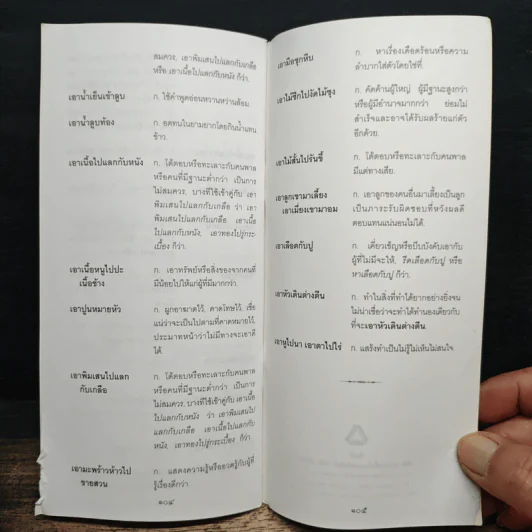 สมควร, เอาพิมเสนไปแลกกับเกลือ
หรือ เอาเนื้อไปแลกกับหนัง ก็ว่า.
เอาน้ำเย็นเข้าลูบ ก. ใช้คำพูดอ่อนหวานหว่านล้อม.
เอาน้ำลูบท้อง ก. อดทนในยามยากโดยกินน้ำแทน
ข้าว.
เอาเนื้อไปแลกกับหนัง ก. โต้ตอบหรือทะเลาะกับคนพาล
หรือคนที่มีฐานะต่ำกว่า เป็นการ
ไม่สมควร, บางทีใช้เข้าคู่กับ เอา
พิมเสนไปแลกกับเกลือ ว่า เอา
พิมเสนไปแลกกับเกลือ เอาเนื้อ
ไปแลกกับหนัง, เอาทองไปรู่กระ-
เบื้อง ก็ว่า.
เอาเนื้อหนูไปปะ ก. เอาทรัพย์หรือสิ่งของจากคนที่
เนื้อช้าง มีน้อยไปให้แก่ผู้ที่มีมากกว่า.
เอาปูนหมายหัว ก. ผูกอาฆาตไว้, คาดโทษไว้, เชื่อ
แน่ว่าจะเป็นไปตามที่คาดหมายไว้,
ประมาทหน้าว่าไม่มีทางจะเอาดี
ได้.
เอาพิมเสนไปแลก ก. โต้ตอบหรือทะเลาะกับคนพาล
กับเกลือ หรือคนที่มีฐานะต่ำกว่า เป็นการ
ไม่สมควร, บางทีใช้เข้าคู่กับ เอาเนื้อ
ไปแลกกับหนัง ว่า เอาพิมเสนไป
แลกกับเกลือ เอาเนื้อไปแลกกับ
หนัง, เอาทองไปรู่กระเบื้อง ก็ว่า.
เอามะพร้าวห้าวไป ก. แสดงความรู้หรืออวดรู้กับผู้ที่
ขายสวน รู้เรื่องดีกว่า
๑๐๔
เอามือซุกหีบ ก. หาเรื่องเดือดร้อนหรือความ
ลำบากใส่ตัวโดยใช่ที่.
เอาไม้ซีกไปงัดไม้ซุง ก. คัดค้านผู้ใหญ่ ผู้มีฐานะสูงกว่า
หรือผู้มีอำนาจมากกว่า ย่อมไม่
สำเร็จและอาจได้รับผลร้ายแก่ตัว
อีกด้วย.
เอาไม้สั้นไปรันขี้ ก. โต้ตอบหรือทะเลาะกับคนพาล
มีแต่ทางเสีย.
เอาลูกเขามาเลี้ยง ก. เอาลูกของคนอื่นมาเลี้ยงเป็นลูก
เอาเมี่ยงเขามาอม เป็นภาระรับผิดชอบที่หวังผลดี
ตอบแทนแน่นอนไม่ได้.
เอาเลือดกับปู ก. เคี่ยวเข็ญหรือบีบบังคับเอากับ
ผู้ที่ไม่มีจะให้, รีดเลือดกับปู หรือ
หาเลือดกับปู ก็ว่า.
เอาหัวเดินต่างตีน ก. ทำในสิ่งที่ทำได้ยากอย่างยิ่งจน
ไม่น่าเชื่อว่าจะทำได้ทำนองเดียวกับ
ที่จะเอาหัวเดินต่างตีน.
เอาหูไปนา เอาตาไปไร่ ก. แสร้งทำเป็นไม่รู้ไม่เห็นไม่สนใจ.
๑๐๕